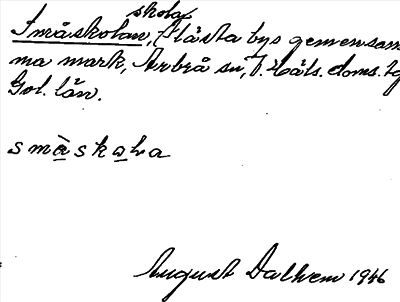 skola
Småskolan, Flästa bys gemensam
ma mark, Arbrå sn, V. Häls. doms. hg
Gvl. län.
småskola
August Dalhem 1946